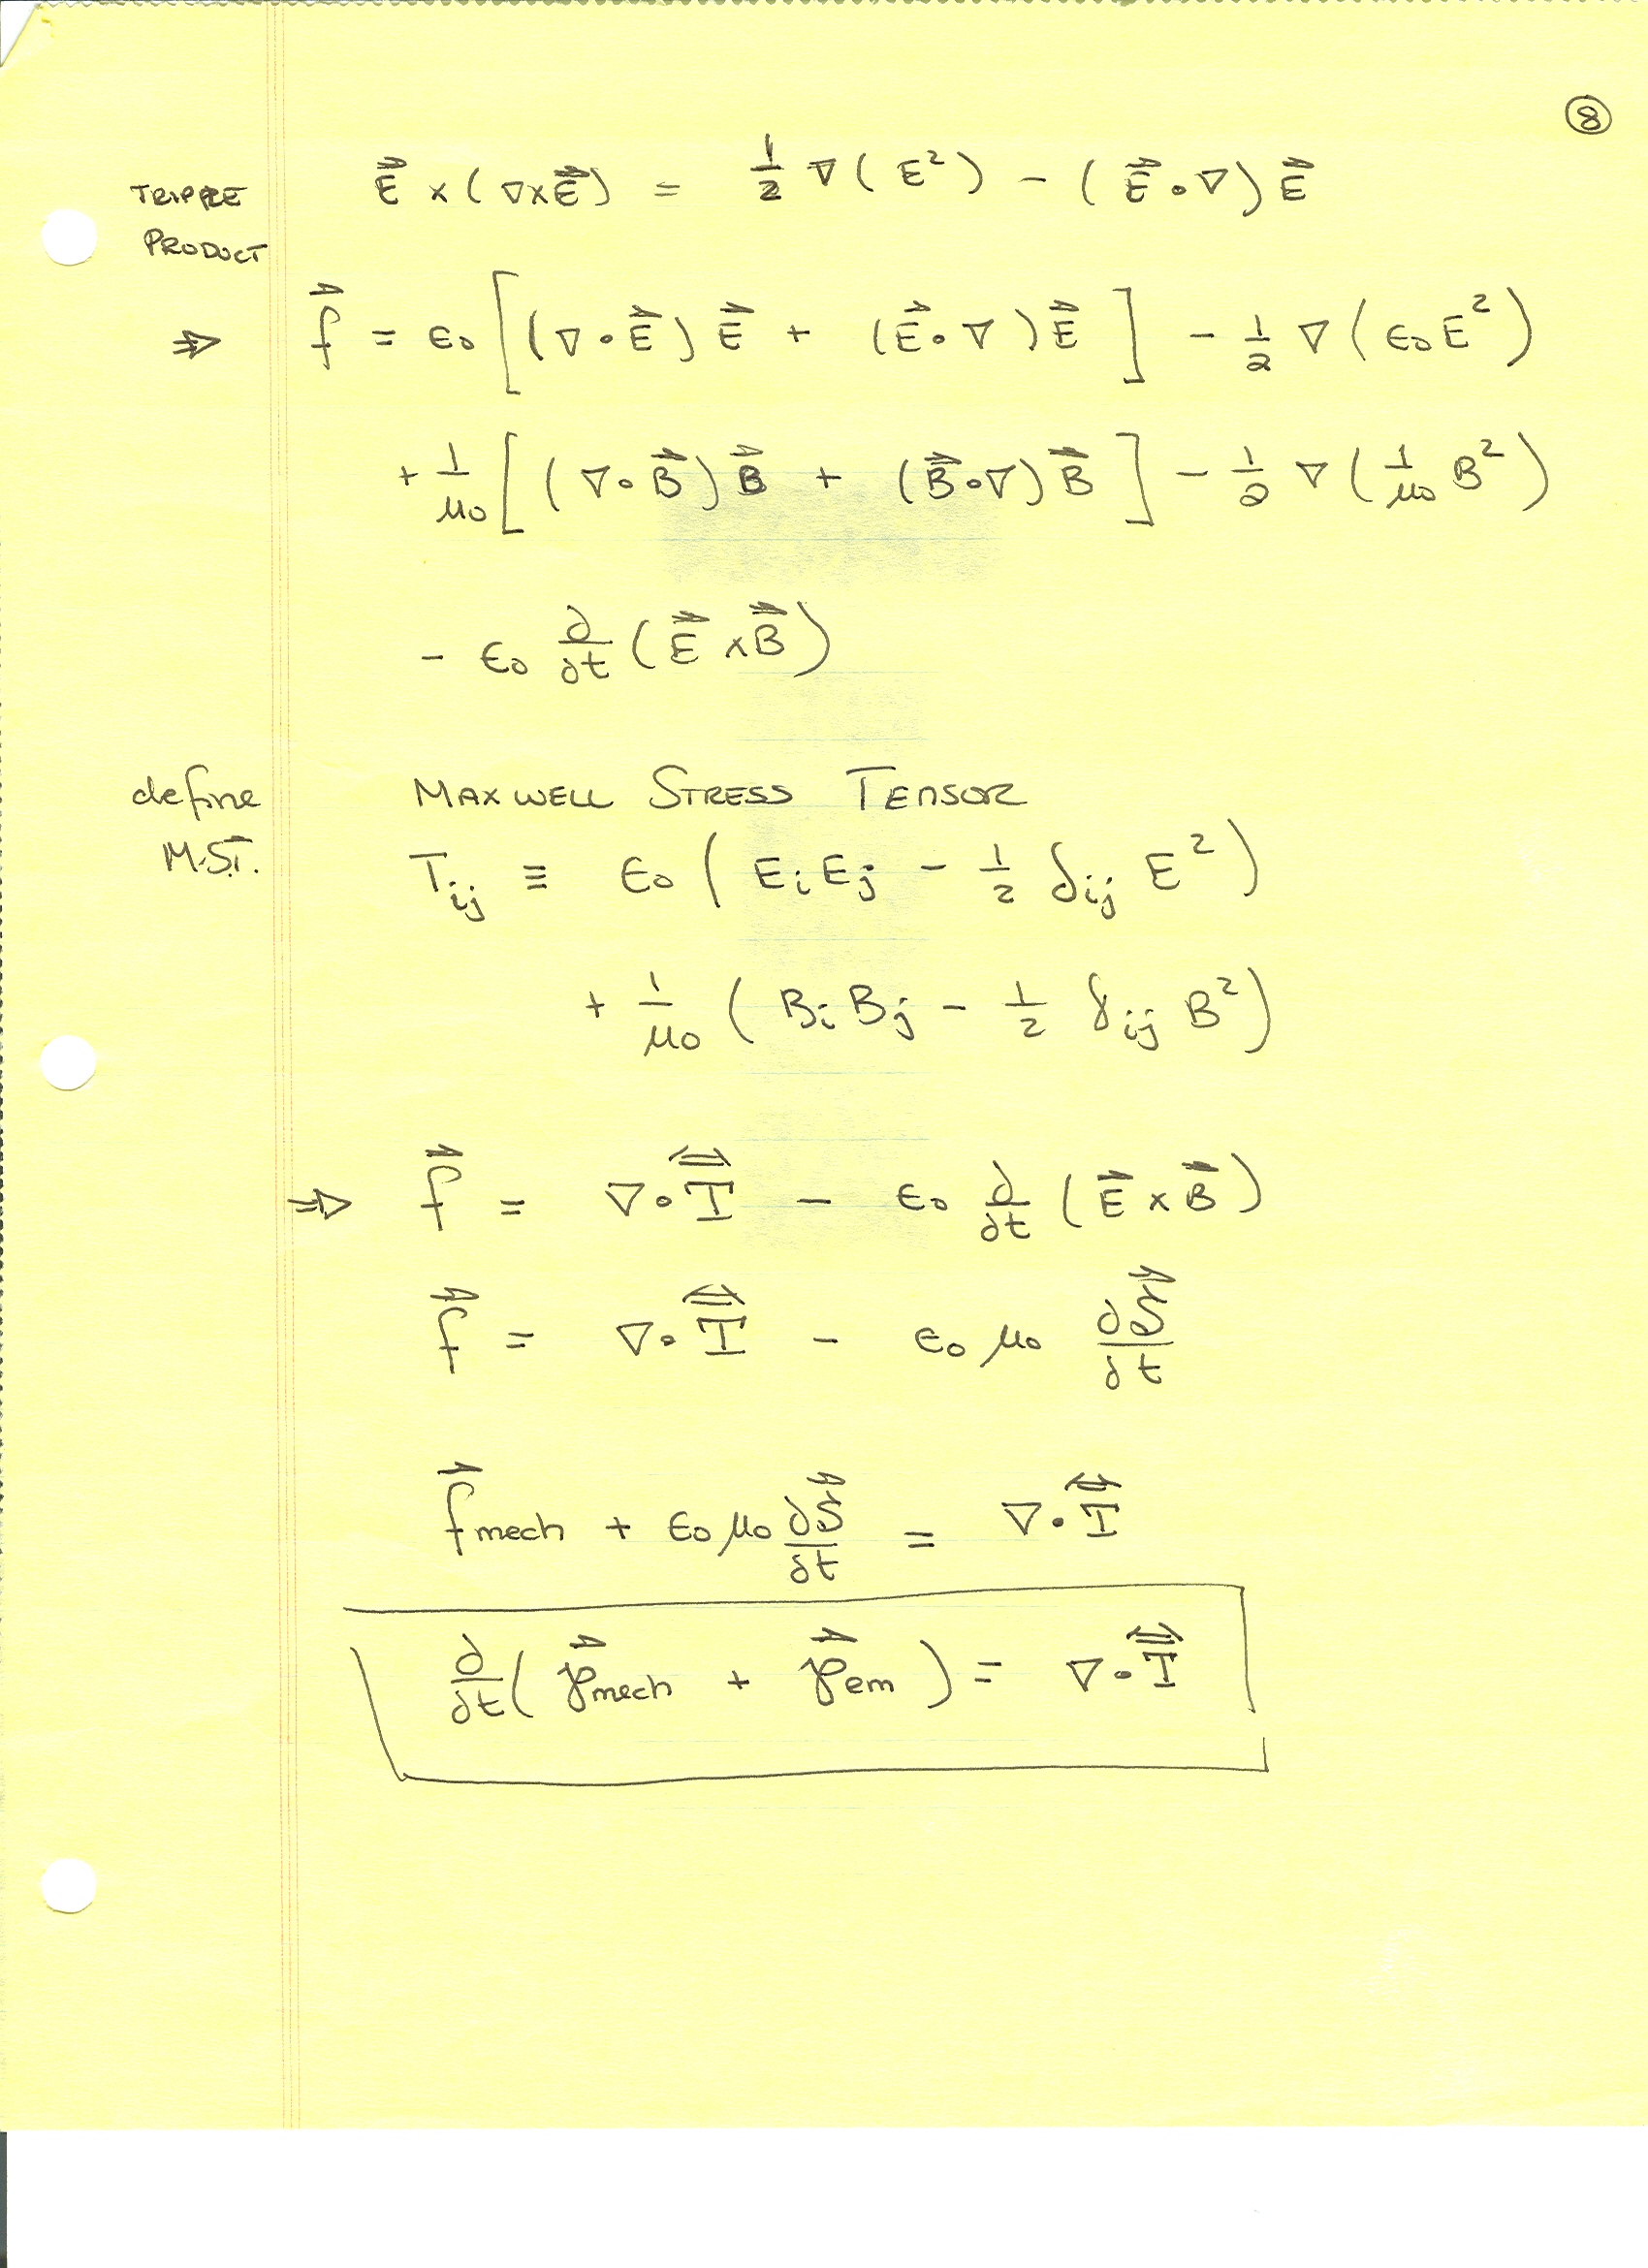 8
TRIPPLE PRODUCT
E⃗ × (∇×E⃗) = 1/2 ∇(E²) − (E⃗•∇)E⃗
⇒ f⃗ = ε₀[(∇•E⃗)E⃗ + (E⃗•∇)E⃗] − 1/2 ∇(ε₀E²)
+ 1/μ₀ [(∇•B⃗)B⃗ + (B⃗•∇)B⃗] − 1/2 ∇(1/μ₀ B²)
− ε₀ ∂/∂t (E⃗ × B⃗)
define M.S.T.
MAXWELL STRESS TENSOR
Tᵢⱼ ≡ ε₀(EᵢEⱼ − 1/2 δᵢⱼ E²)
+ 1/μ₀ (BᵢBⱼ − 1/2 δᵢⱼ B²)
⇒ f⃗ = ∇•T⃡ − ε₀ ∂/∂t (E⃗ × B⃗)
f⃗ = ∇•T⃡ − ε₀μ₀ ∂S⃗/∂t
f⃗mech + ε₀μ₀ ∂S⃗/∂t = ∇•T⃡
∂/∂t (℘⃗mech + ℘⃗em) = ∇•T⃡